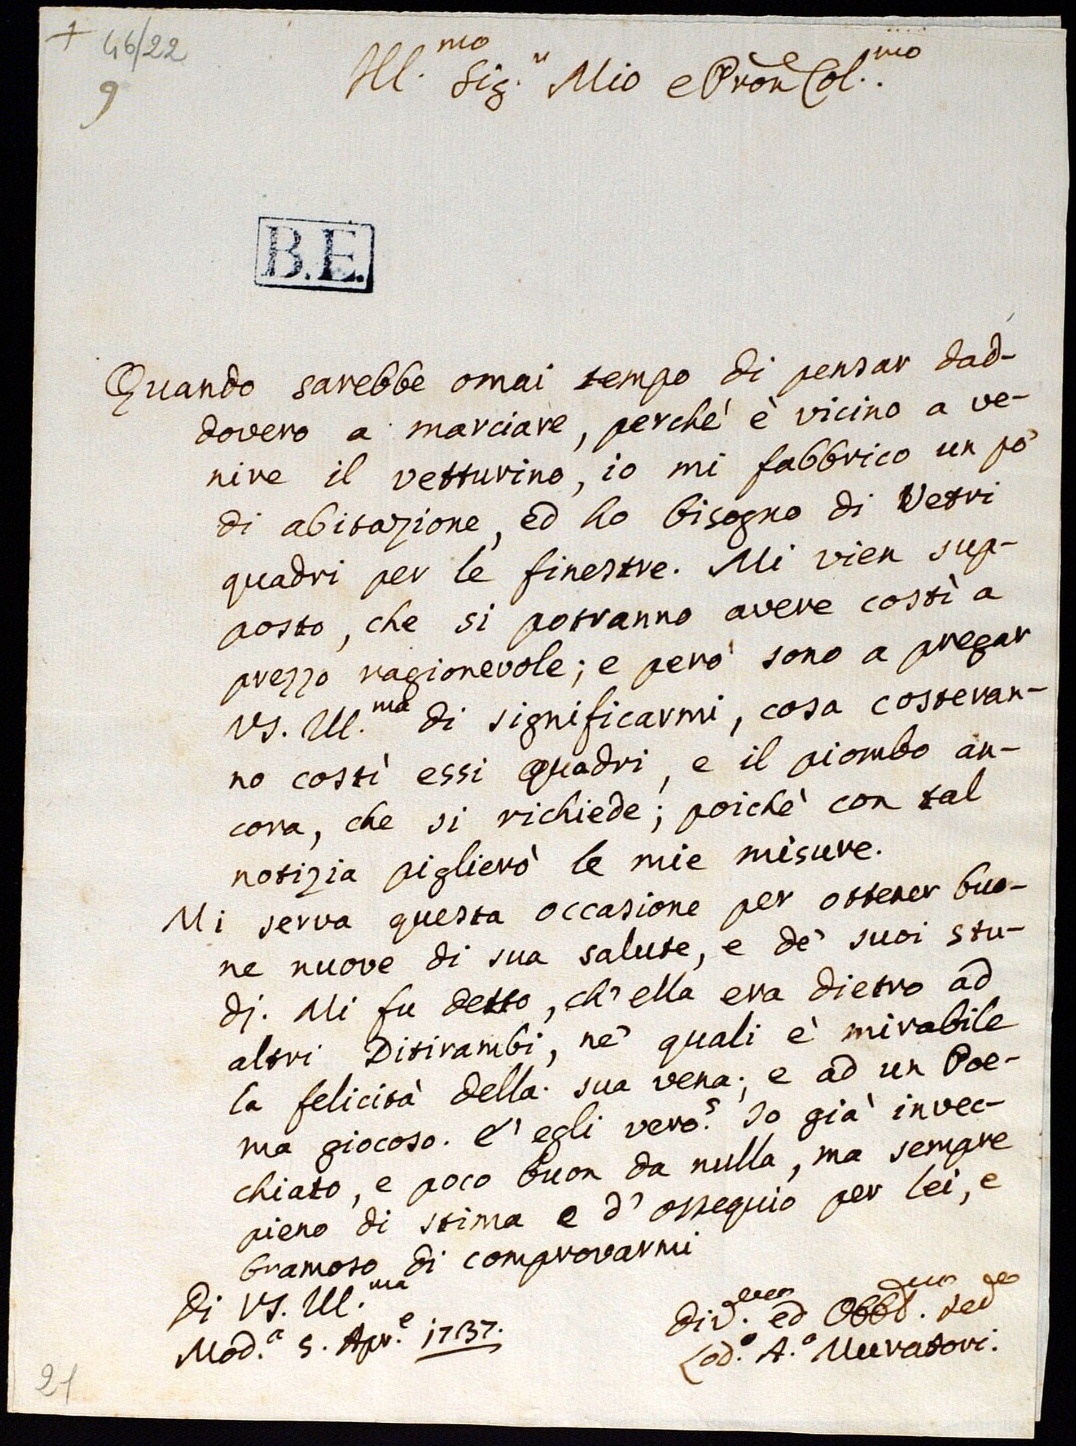 + 46/22
9
Ill.mo Sig.r Mio e Pron Col.mo
B.E.
Quando sarebbe omai tempo di pensar dad-
dovero a marciare, perchè è vicino a ve-
nire il vetturino, io mi fabbrico un po'
di abitazione, ed ho bisogno di Vetri
quadri per le finestre. Mi vien sup-
posto, che si potranno avere costì a
prezzo ragionevole; e però sono a pregar
VS. Ill.ma di significarmi, cosa costeran-
no costì essi quadri, e il piombo an-
cora, che si richiede; poichè con tal
notizia piglierò le mie misure.
Mi serva questa occasione per ottener buo-
ne nuove di sua salute, e de' suoi stu-
dj. Mi fu detto, ch'ella era dietro ad
altri Ditirambi, ne' quali è mirabile
la felicità della sua vena; e ad un Poe-
ma giocoso. E' egli vero? Io già invec-
chiato, e poco buon da nulla, ma sempre
pieno di stima e d'ossequio per lei, e
bramoso di comprovarmi
Di VS. Ill.ma
Mod.a 5. Apr.e 1737.
Div. ed Obbl.
Lod.o A.o Muratori.
21